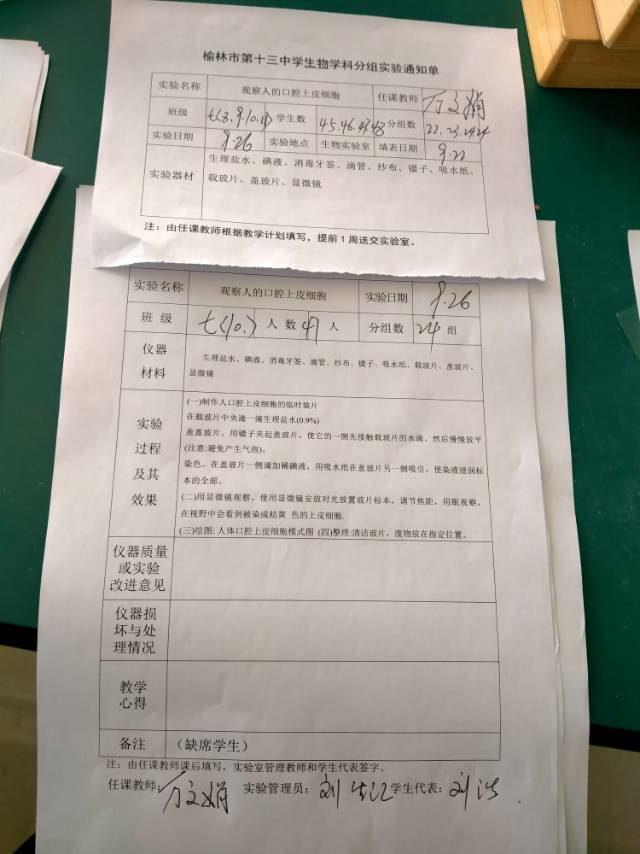 榆林市第十三中学生物学科分组实验通知单
实验名称 观察人的口腔上皮细胞 任课教师 万文娟
班级 七(8.9.10.11) 学生数 45.46.47.48 分组数 22.23.24.24
实验日期 9.26 实验地点 生物实验室 填表日期 9.22
实验器材 生理盐水、碘液、消毒牙签、滴管、纱布、镊子、吸水纸、
载玻片、盖玻片、显微镜
注：由任课教师根据教学计划填写，提前1周送交实验室。
实验名称 观察人的口腔上皮细胞 实验日期 9.26
班 级 七(10.) 人 数 47 人 分组数 24 组
仪器
材料
生理盐水、碘液、消毒牙签、滴管、纱布、镊子、吸水纸、载玻片、盖玻片、
显微镜
实验
过程
及其
效果
(一)制作人口腔上皮细胞的临时装片
在载玻片中央滴一滴生理盐水(0.9%)
盖盖玻片。用镊子夹起盖玻片，使它的一侧先接触载玻片的水滴，然后慢慢放平
(注意:避免产生气泡)。
染色。在盖玻片一侧滴加稀碘液，用吸水纸在盖玻片另一侧吸引，使染液浸润标
本的全部。
(二)用显微镜观察，使用显微镜安放对光放置玻片标本，调节焦距，用眼观察。
在视野中会看到被染成桔黄 色的上皮细胞.
(三)绘图: 人体口腔上皮细胞模式图 (四)整理:清洁玻片，废物放在指定位置。
仪器质量
或实验
改进意见
仪器损
坏与处
理情况
教学
心得
备注 （缺席学生）
注：由任课教师课后填写，实验室管理教师和学生代表签字。
任课教师：万文娟 实验管理员：刘 学生代表：刘浩